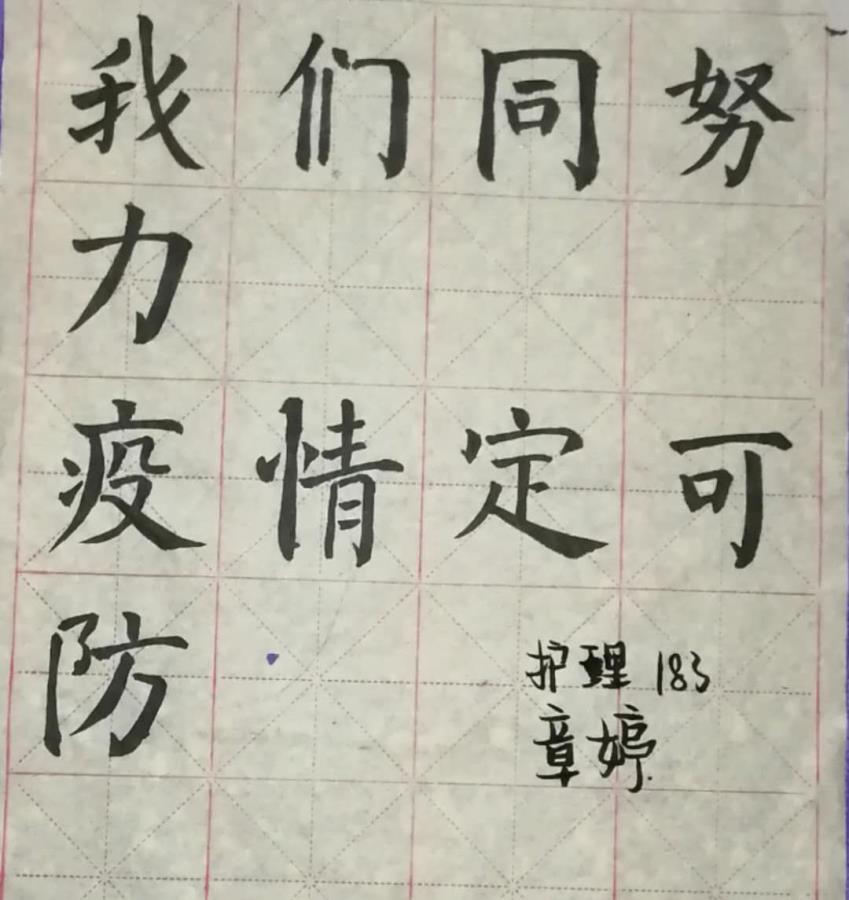 我们同努
力
疫情定可
防
护理 183
章婷